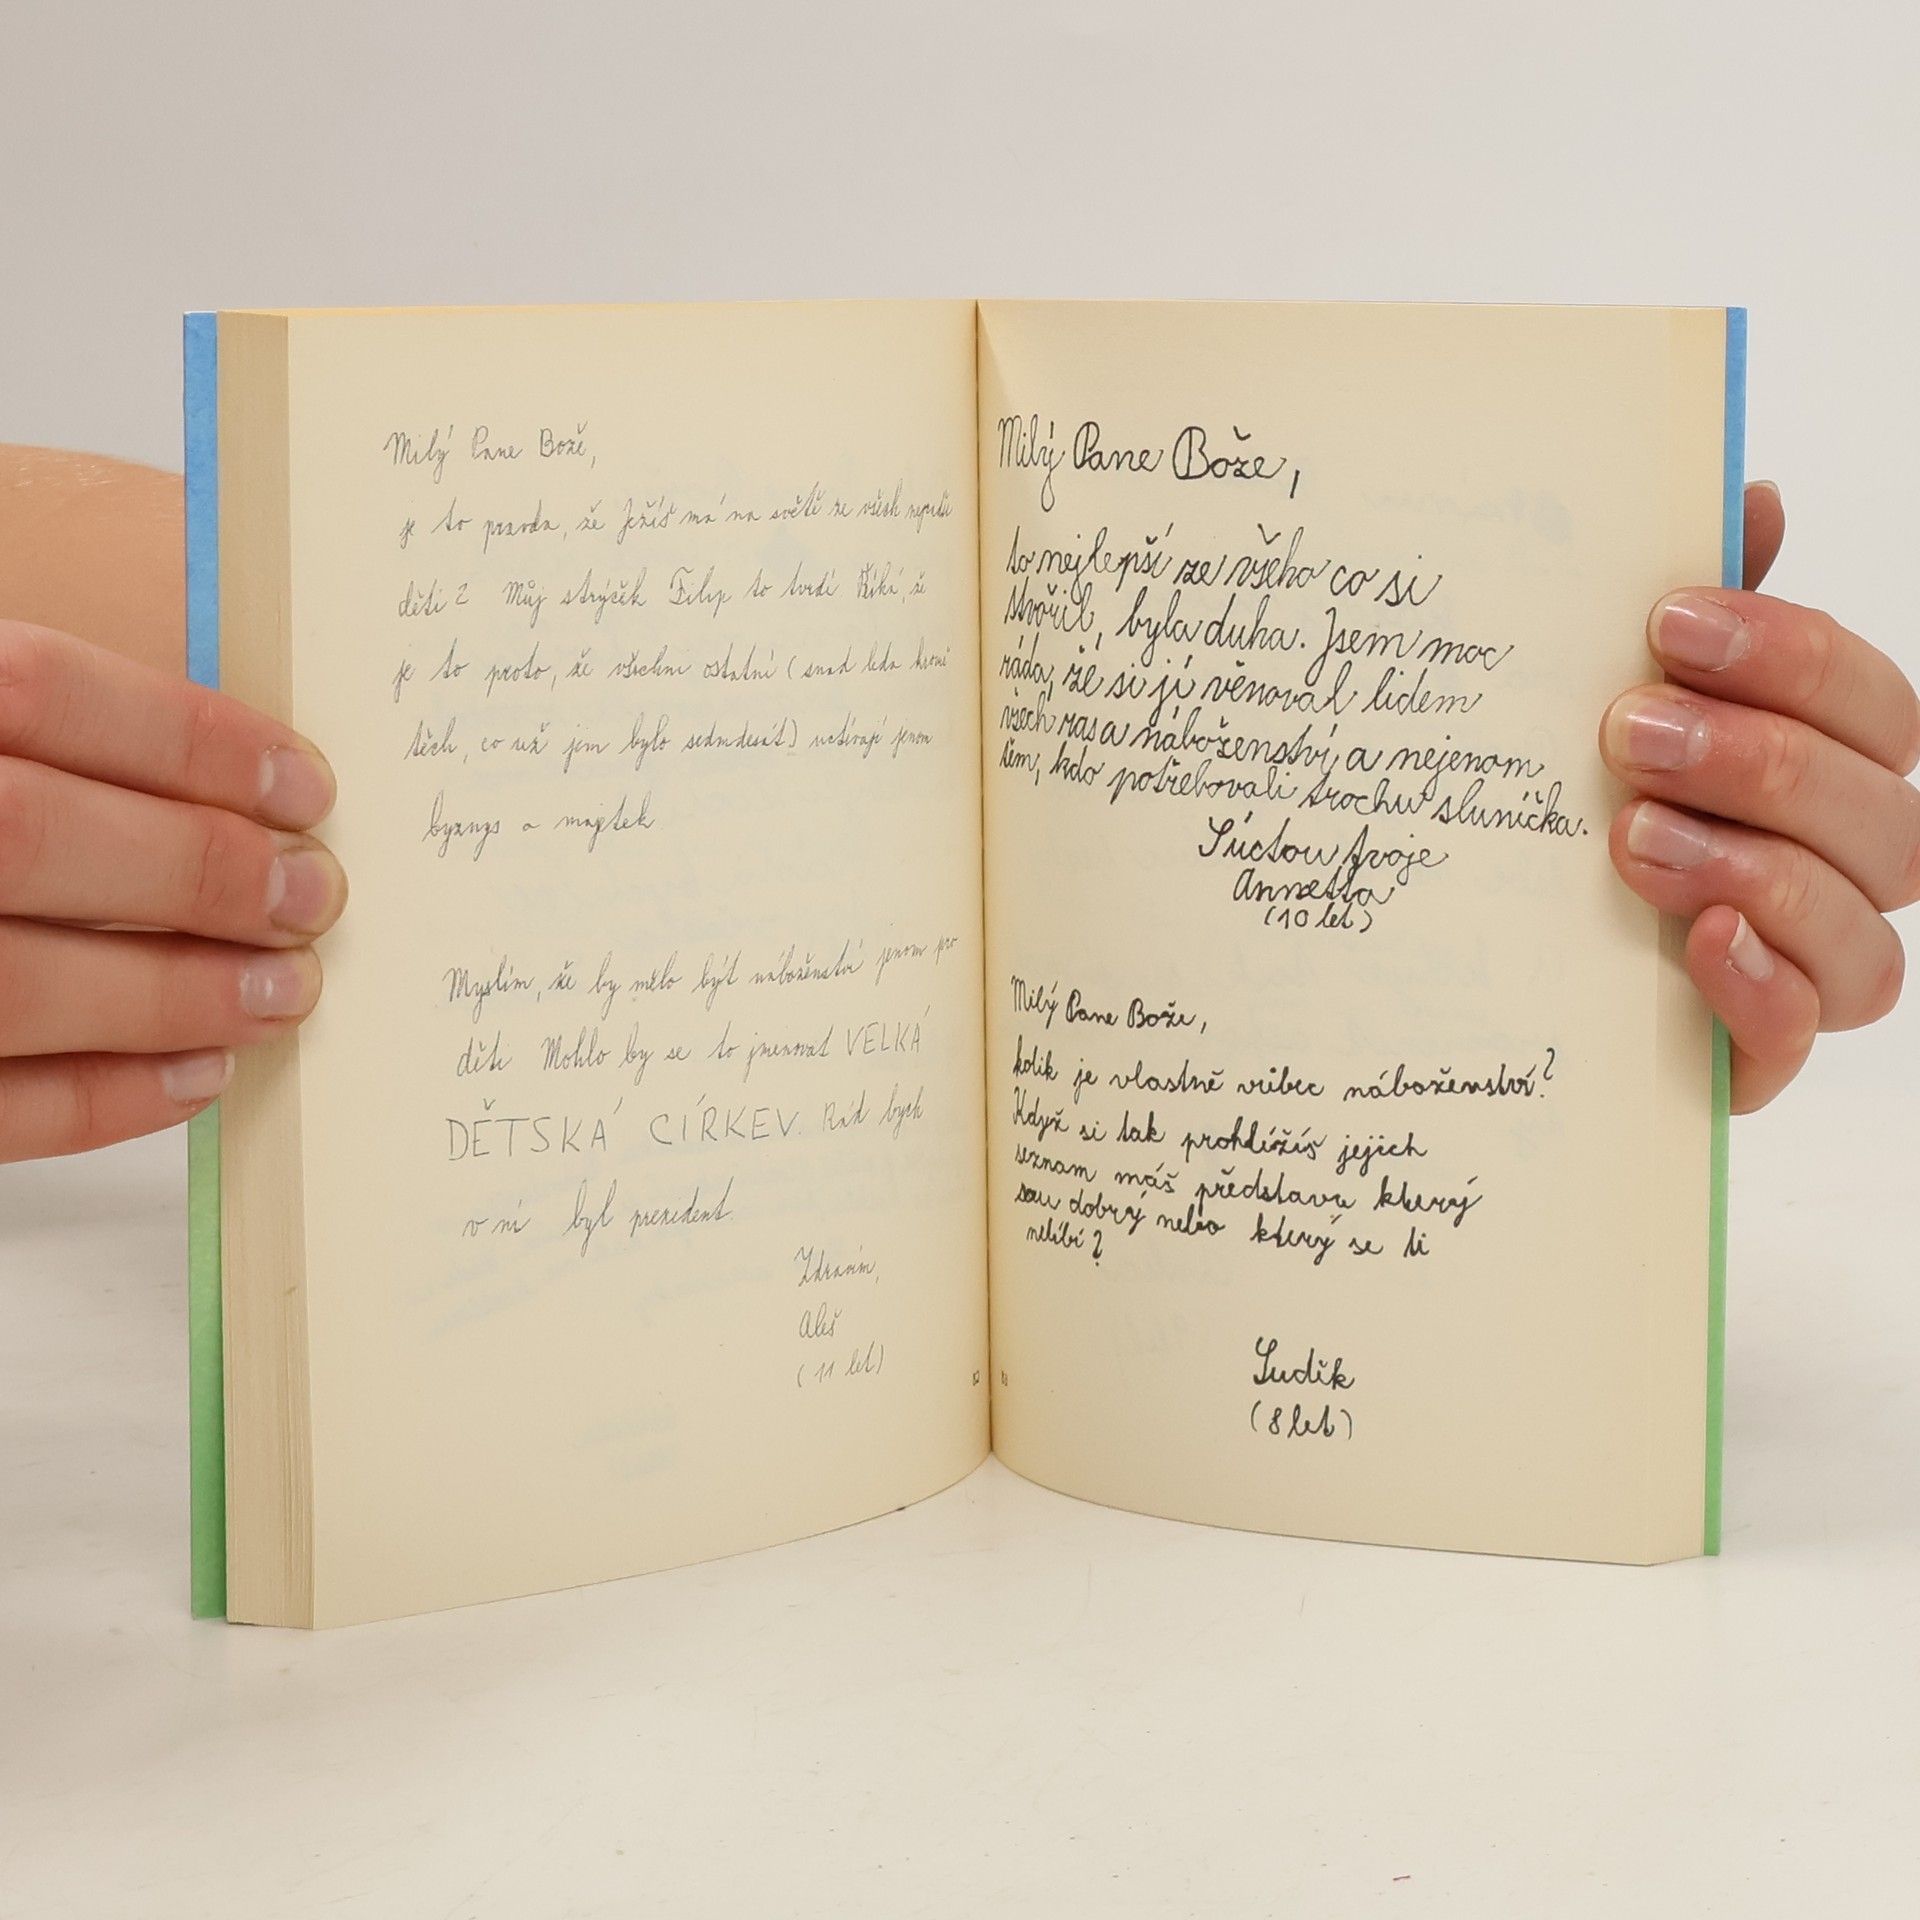 Milý Pane Bože,
je to pravda, že Ježíš má na světě ze všech nejradši
děti? Můj strýček Filip to tvrdí Říká, že
je to proto, že všichni ostatní (snad leda kromě
těch, co už jim bylo sedmdesát) uctívají jenom
byznys a majetek
Myslím, že by mělo být náboženství jenom pro
děti Mohlo by se to jmenovat VELKÁ
DĚTSKÁ CÍRKEV. Rád bych
v ní byl prezident.
Zdravím,
Aleš
(11 let)
Milý Pane Bože,
to nejlepší ze všeho co si
stvořil, byla duha. Jsem moc
ráda, že si jí věnoval lidem
všech ras a náboženství, a nejenom
těm, kdo potřebovali trochu sluníčka.
S úctou tvoje
Annetta
(10 let)
Milý Pane Bože,
kolik je vlastně vůbec náboženství?
Když si tak prohlížíš jejich
seznam máš představu který
sou dobrý nebo který se ti
nelíbí?
Luděk
(8 let)